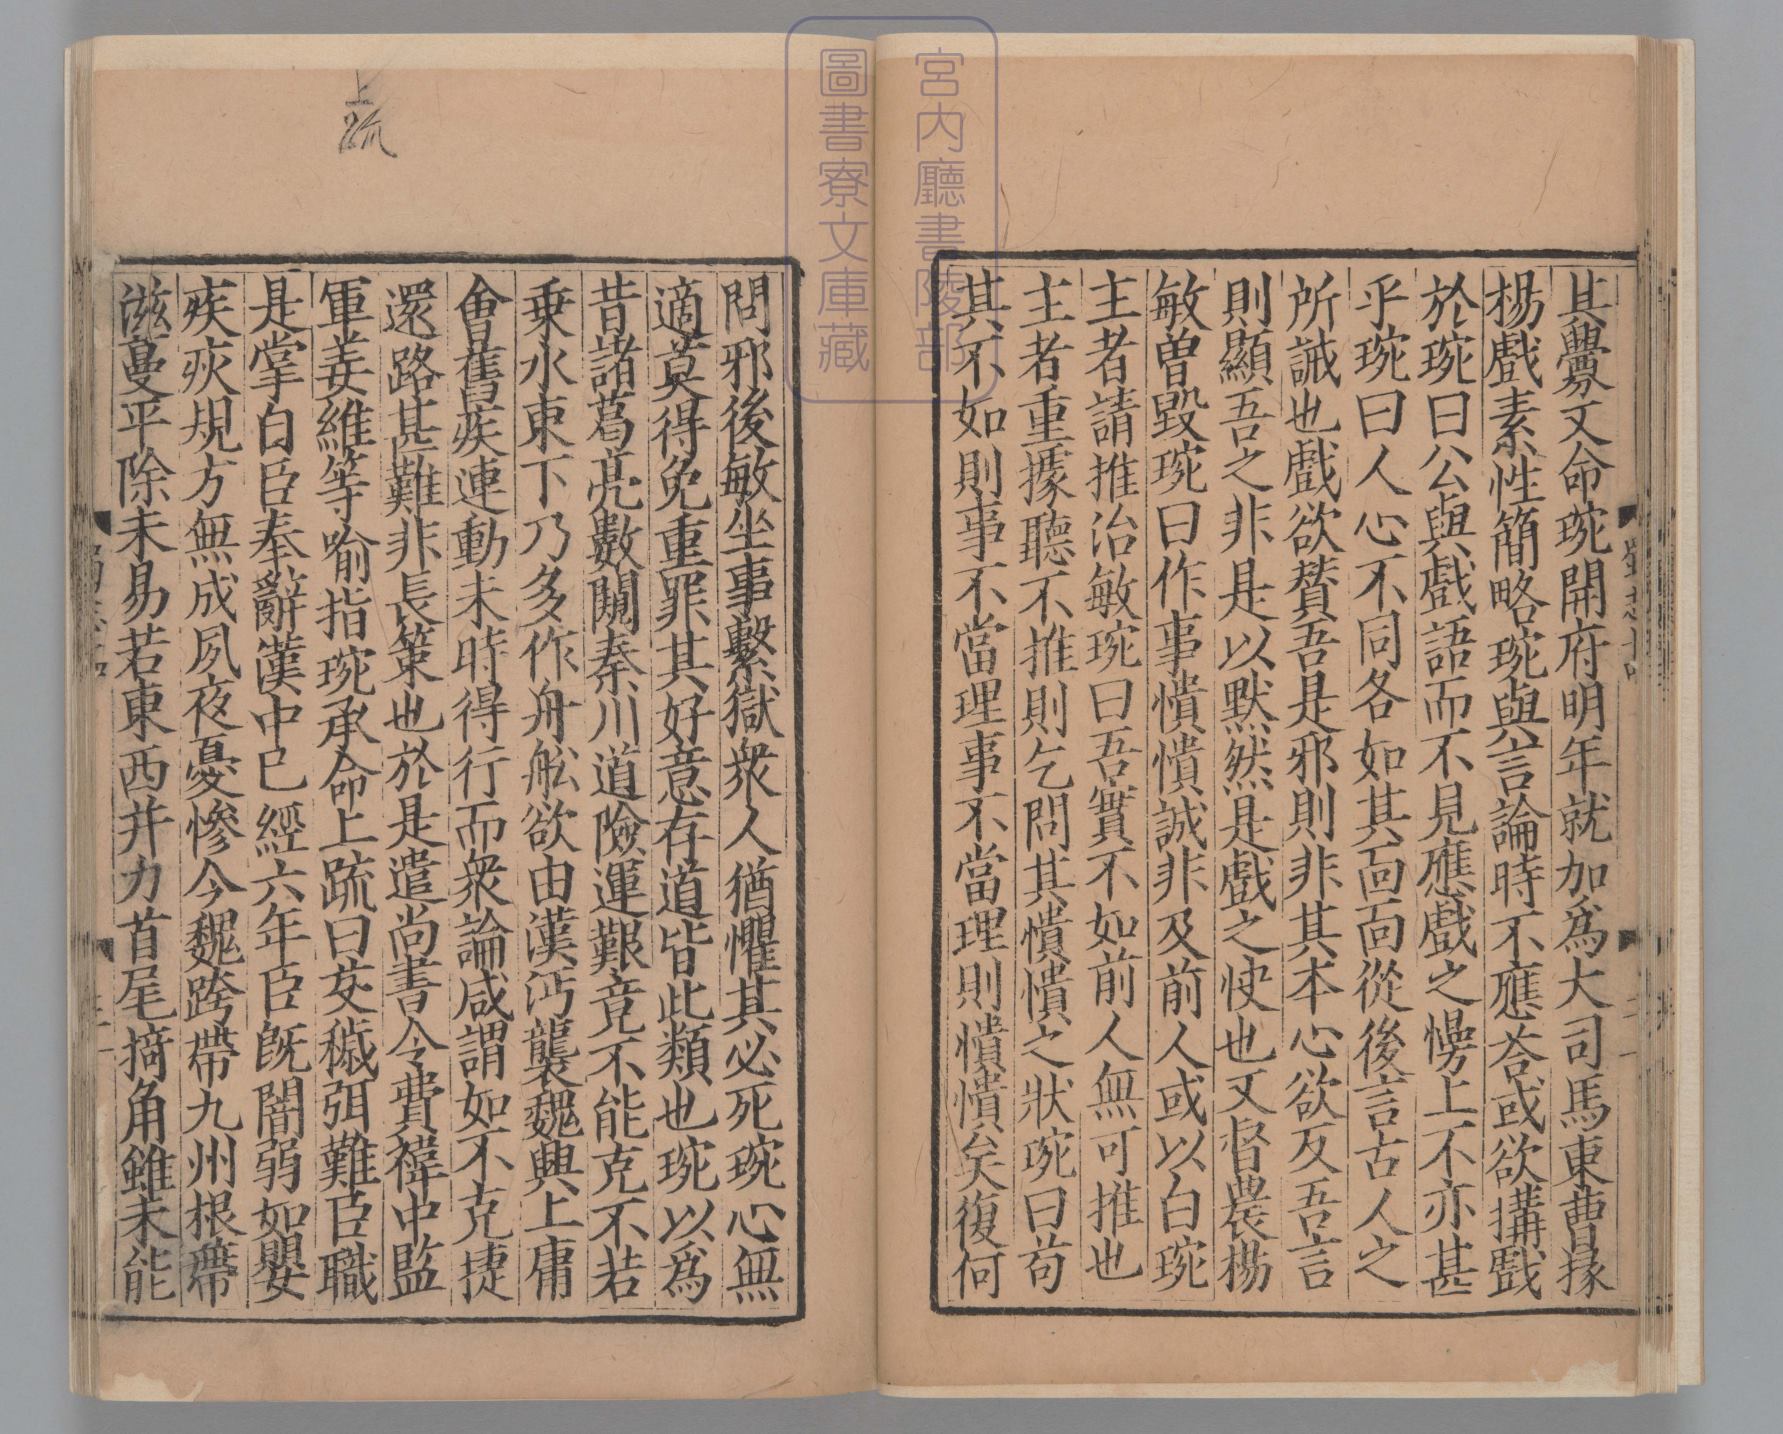 其釁又命琬開府明年就加爲大司馬東曹掾
楊戲素性簡略琬與言論時不應荅或欲搆戲
於琬曰公與戲語而不見應戲之慢上不亦甚
乎琬曰人心不同各如其面面從後言古人之
所誡也戲欲賛吾是邪則非其本心欲反吾言
則顯吾之非是以默然是戲之快也又督農楊
敏曽毀琬曰作事憒憒誠非及前人或以白琬
主者請推治敏琬曰吾實不如前人無可推也
主者重據聽不推則乞問其憒憒之狀琬曰苟
其不如則事不當理事不當理則憒憒矣復何
問邪後敏坐事繫獄衆人猶懼其必死琬心無
適莫得免重罪其好意存道皆此類也琬以爲
昔諸葛亮數闚秦川道險運艱竟不能克不若
乗水東下乃多作舟舩欲由漢沔襲魏興上庸
會舊疾連動未時得行而衆論咸謂如不克捷
還路甚難非長策也於是遣尚書令費禕中監
軍姜維等喻指琬承命上疏曰芟穢弭難臣職
是掌自臣奉辭漢中已經六年臣旣闇弱如嬰
疾疢規方無成夙夜憂慘今魏跨帶九州根蔕
滋蔓平除未易若東西并力首尾掎角雖未能
上疏
蜀志十四
宮内廳書陵部
圖書寮文庫藏